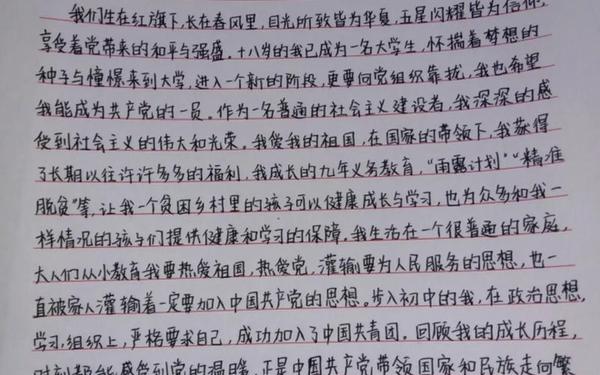 我们生在红旗下,长在春风里,目光所致皆为华夏,五星闪耀皆为信仰,
享受着党带来的和平与强盛。十八岁的我已成为一名大学生,怀揣着梦想的
种子与憧憬来到大学,进入一个新的阶段,更要向党组织靠拢,我也希望
我能成为共产党的一员。作为一名普通的社会主义建设者,我深深的感
受到社会主义的伟大和光荣。我爱我的祖国,在国家的带领下,我获得
了长期以往许许多多的福利,我成长的九年义务教育,“雨露计划”“精准
脱贫”等,让我一个贫困乡村里的孩子可以健康成长与学习,也为众多和我一
样情况的孩子们提供健康和学习的保障。我生活在一个很普通的家庭,
大人们从小教育我要热爱祖国,热爱党,灌输要为人民服务的思想,也一
直被家人灌输着一定要加入中国共产党的思想。步入初中的我,在政治思想,
学习,组织上,严格要求自己,成功加入了中国共青团。回顾我的成长历程,
时刻都能感受到党的温暖,正是中国共产党带领国家和民族走向繁